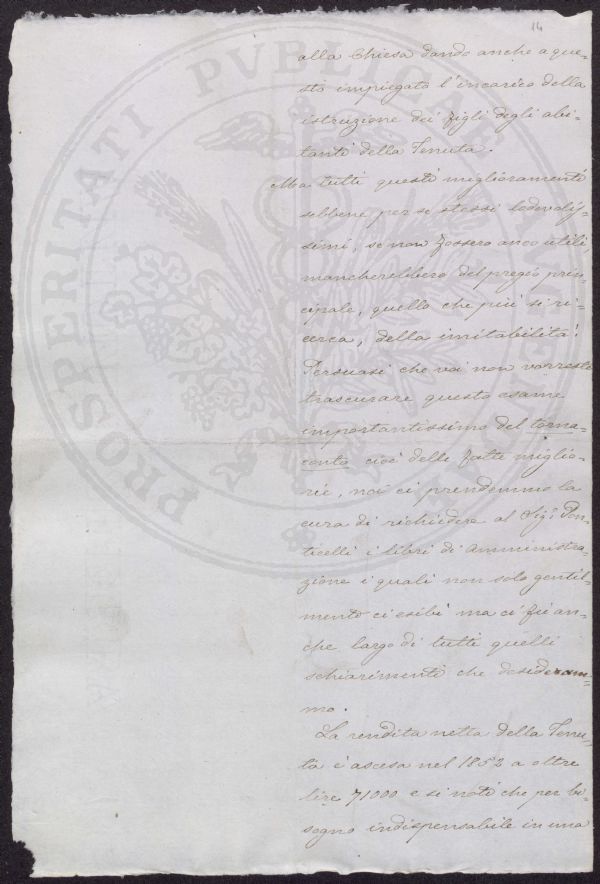 14
alla Chiesa dando anche a que-
sto impiegato l'incarico della
istruzione dei figli degli abi-
tanti della Tenuta.
Ma tutti questi miglioramenti
sebbene per se stessi lodevolis-
simi, se non fossero anco utili,
mancherebbero del pregio prin-
cipale, quello che più si ri-
cerca, della imitabilità!
Persuasi che voi non vorreste
trascurare questo esame
importantissimo del torna-
conto cioè delle fatte miglio-
rie, noi ci prendemmo la
cura di richiedere al Sigr Pon-
ticelli i libri di Amministra-
zione i quali non solo gentil-
mente ci esibì ma ci fù an-
che largo di tutti quelli
schiarimenti che desideram-
mo.
La rendita netta della Tenu-
ta è ascesa nel 1852 a oltre
lire 71000 e si noti che per bi-
sogno indispensabile in una
PROSPERITATI PUBLICAE AUGENDAE